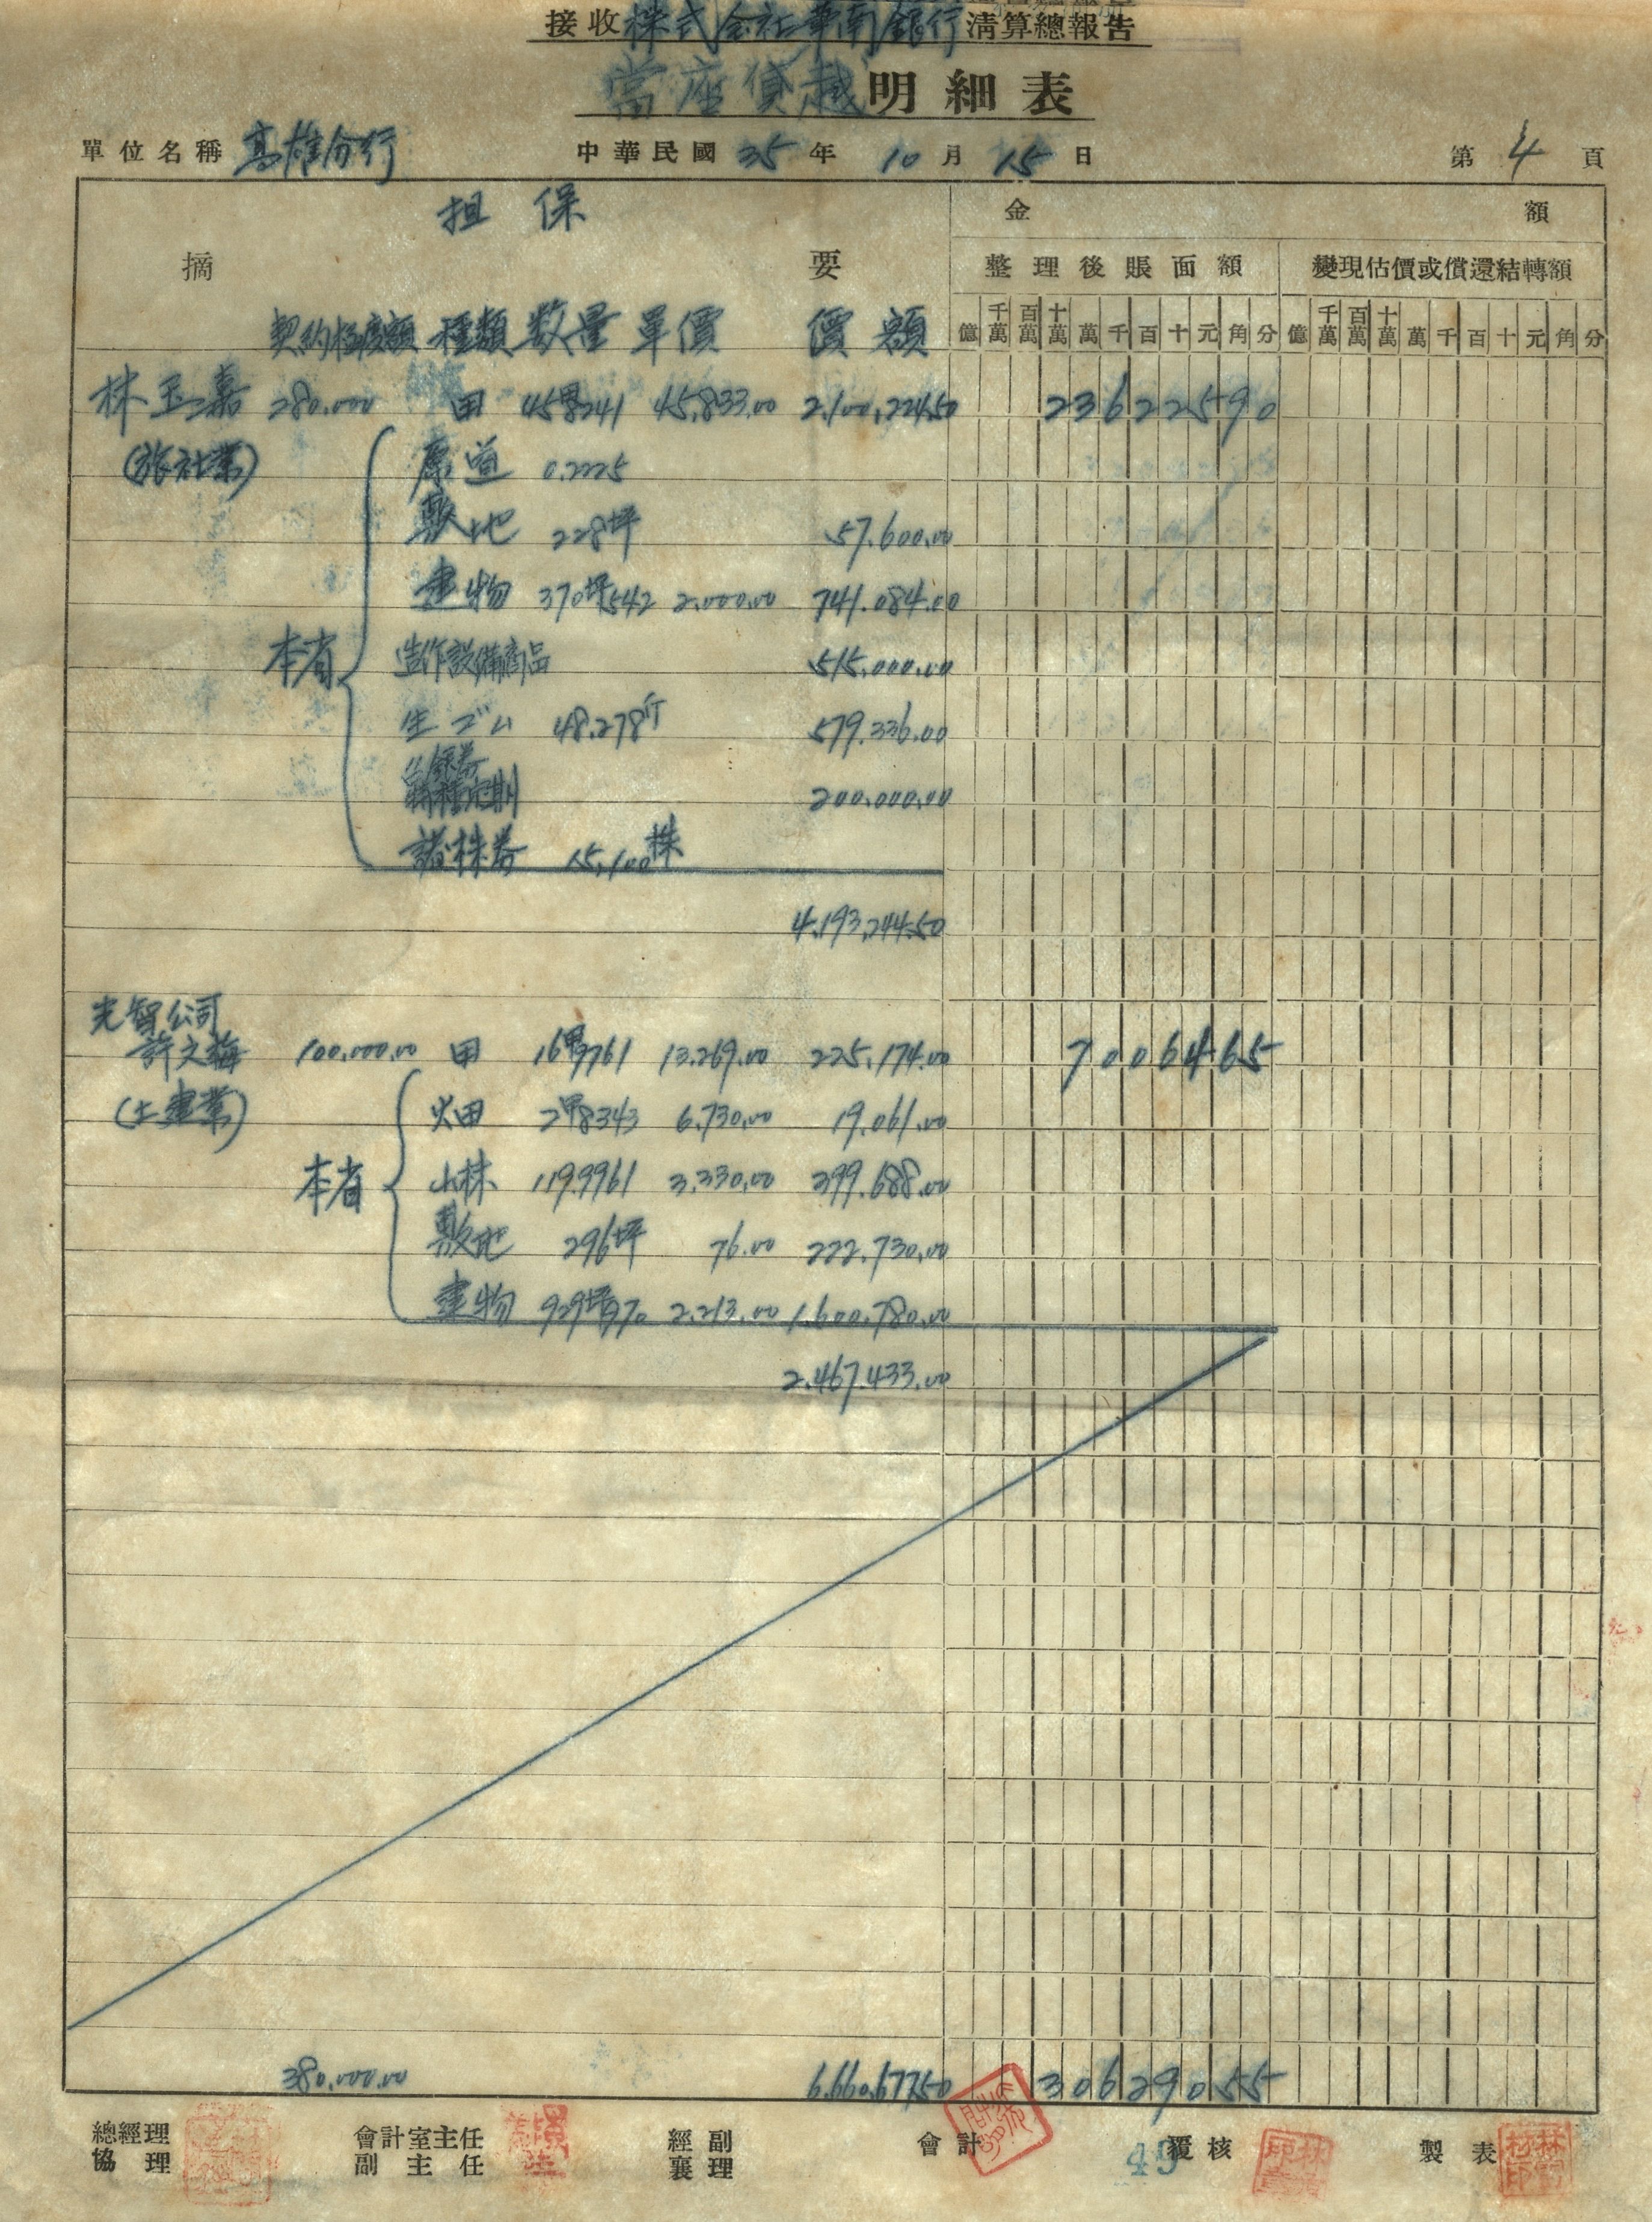 接收株式会社華南銀行清算總報告
當座貸越明細表
單位名稱 高雄分行 中華民國 35 年 10 月 15 日 第 4 頁
担保 金額
摘要 整理後賬面額 變現估價或償還結轉額
契約極度額 種類 数量 單價 價額 億 千萬 百萬 十萬 萬 千 百 十 元 角 分 億 千萬 百萬 十萬 萬 千 百 十 元 角 分
林玉嘉 280,000 田 45甲8241 45,833.00 2,100,224.50 23622590
(旅社業) 原道 0.2225
敷地 228坪 57,600.00
建物 370坪542 2,000.00 741,084.00
本省 造作設備商品 515,000.00
生ゴム 48,278斤 579,336.00
特種定期 200,000.00
諸株券 15,100株
4,193,244.50
光智公司
許文梅 100,000.00 田 16甲9761 13,269.00 225,174.00 7006465
(土建業) 畑 2甲8343 6,730.00 19,061.00
本省 山林 119.9961 3,330.00 399,688.00
敷地 296坪 76.00 222,730.00
建物 929坪970 2,213.00 1,600,780.00
2,467,433.00
380,000.00 6,660,677.50 30629055
總經理 協理 會計室主任 副主任 經副襄理 會計 覆核 製表
49